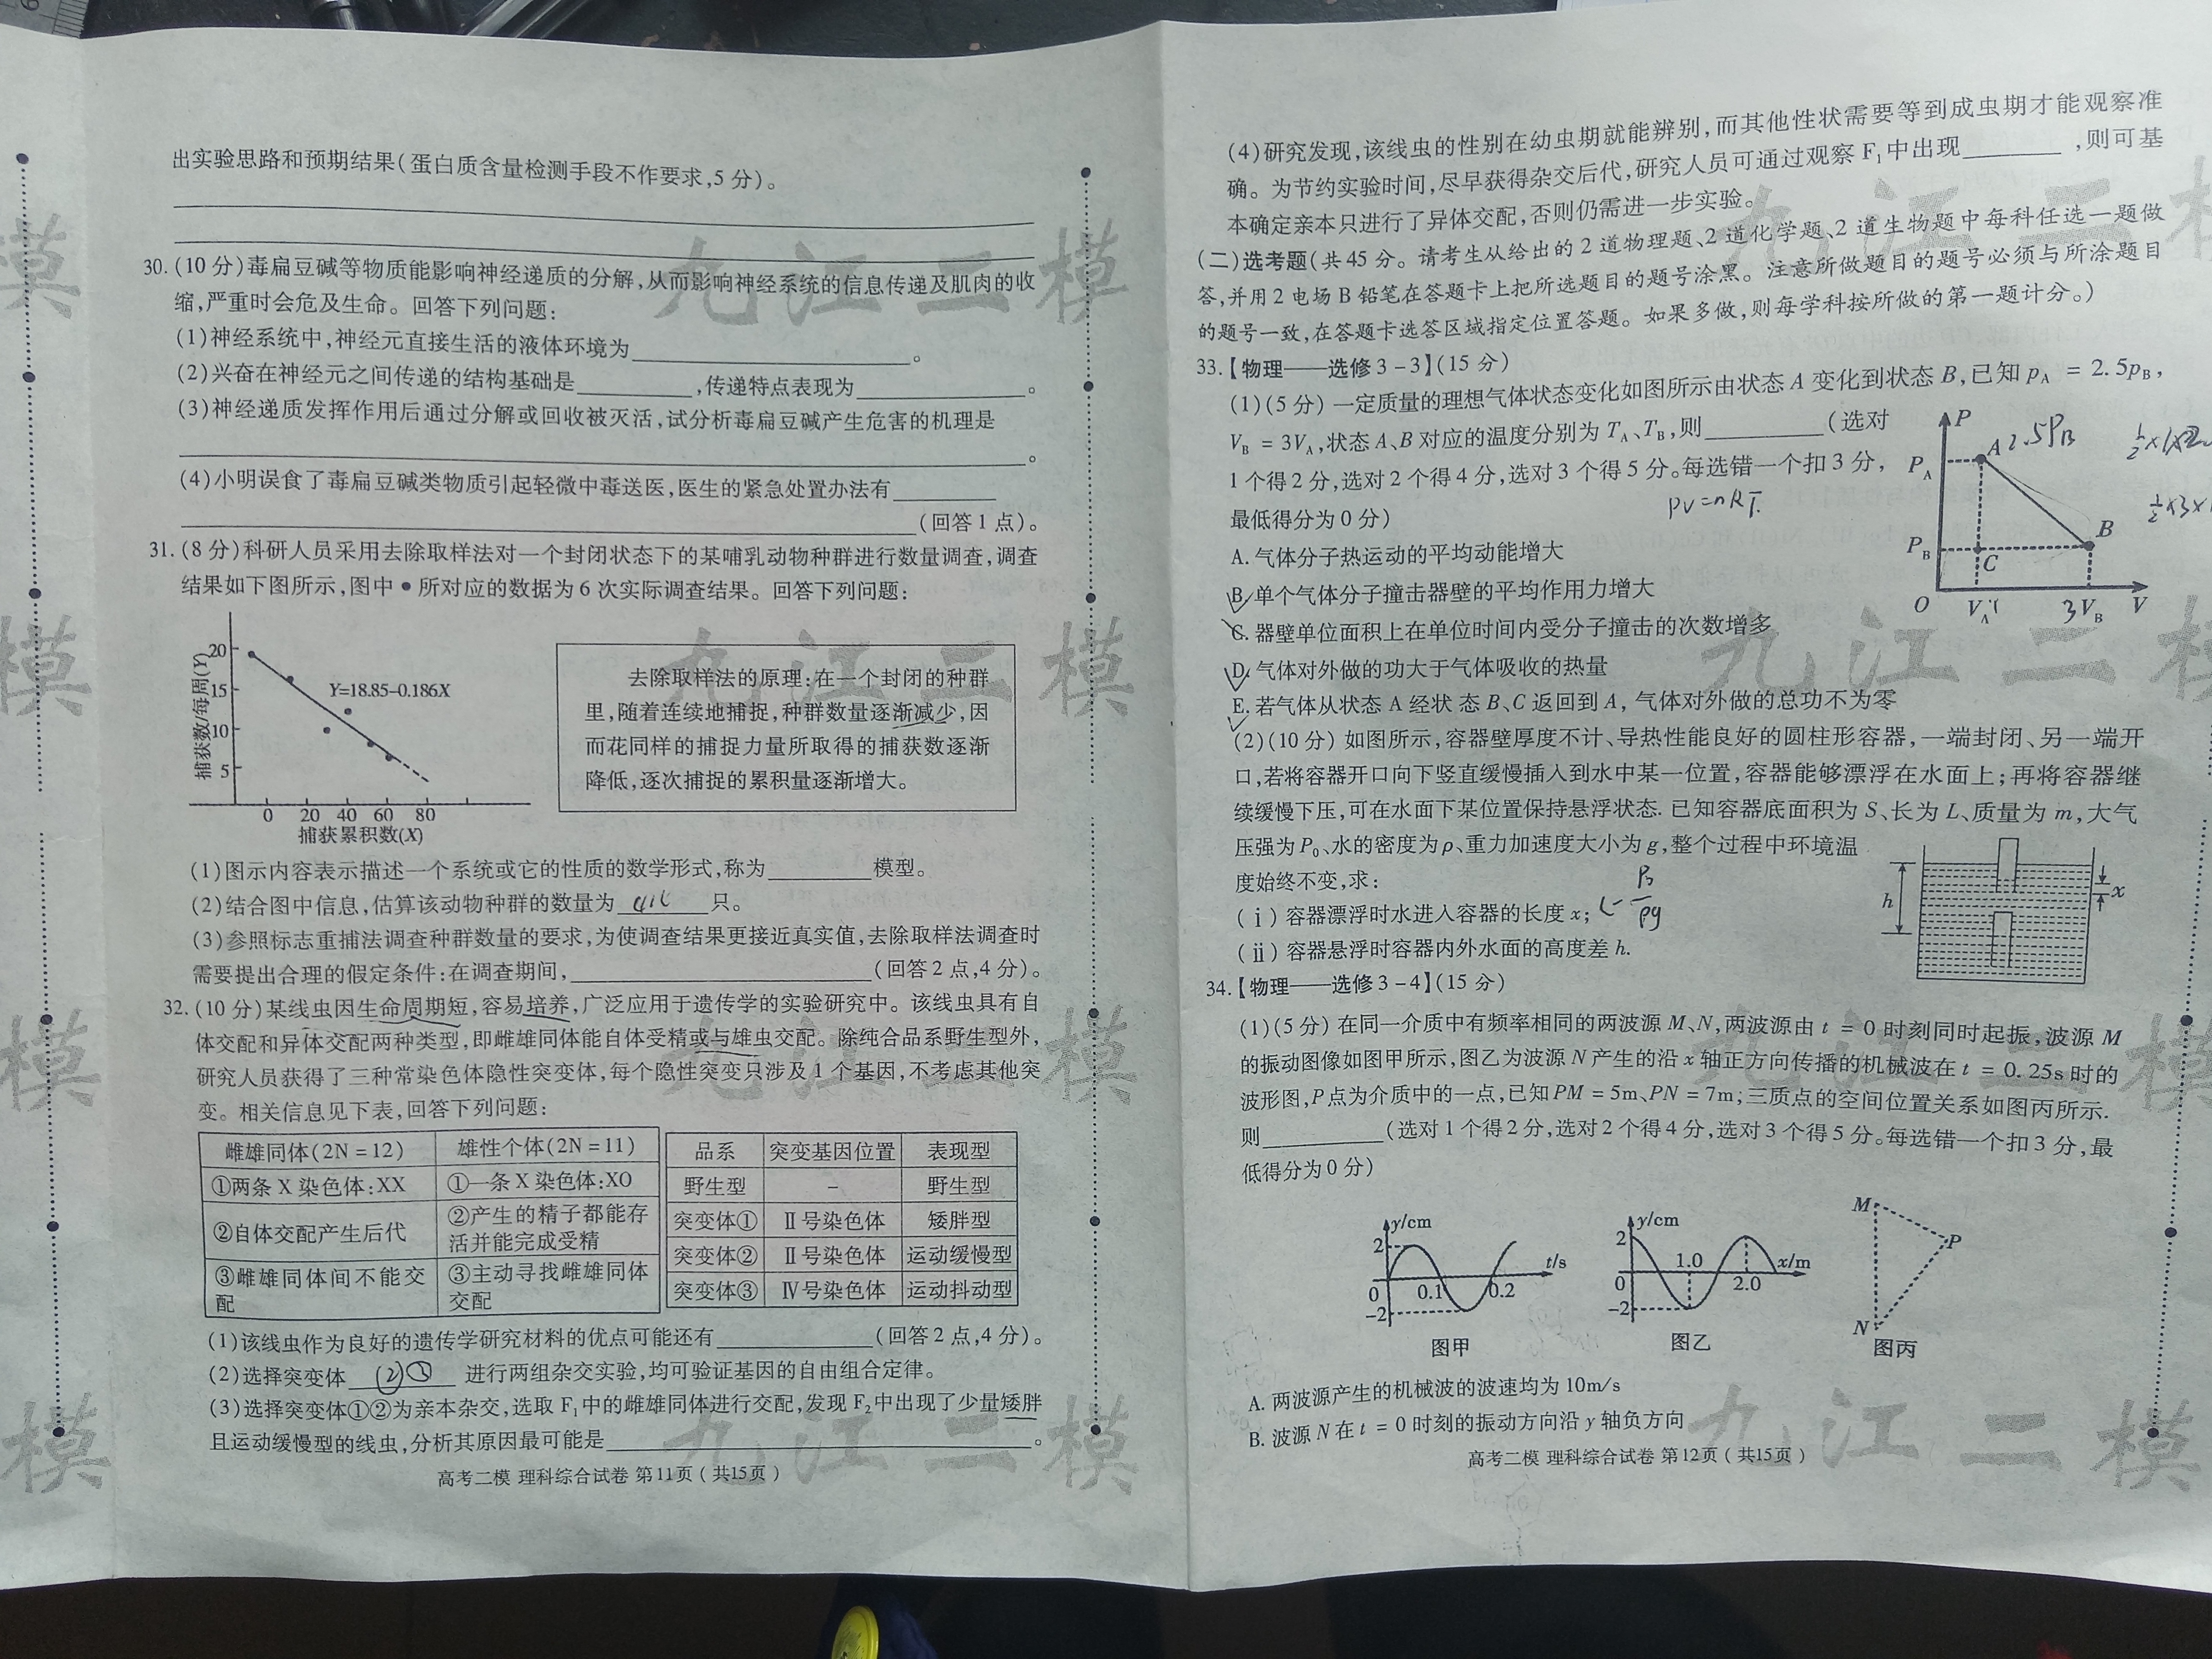 出实验思路和预期结果(蛋白质含量检测手段不作要求,5分)。
30.(10分)毒扁豆碱等物质能影响神经递质的分解,从而影响神经系统的信息传递及肌肉的收
缩,严重时会危及生命。回答下列问题:
(1)神经系统中,神经元直接生活的液体环境为____________。
(2)兴奋在神经元之间传递的结构基础是________,传递特点表现为____________。
(3)神经递质发挥作用后通过分解或回收被灭活,试分析毒扁豆碱产生危害的机理是
____________。
(4)小明误食了毒扁豆碱类物质引起轻微中毒送医,医生的紧急处置办法有________
____________(回答1点)。
31.(8分)科研人员采用去除取样法对一个封闭状态下的某哺乳动物种群进行数量调查,调查
结果如下图所示,图中●所对应的数据为6次实际调查结果。回答下列问题:
捕获数/每周(Y)
20
15
10
5
Y=18.85-0.186X
0 20 40 60 80
捕获累积数(X)
去除取样法的原理:在一个封闭的种群
里,随着连续地捕捉,种群数量逐渐减少,因
而花同样的捕捉力量所取得的捕获数逐渐
降低,逐次捕捉的累积量逐渐增大。
(1)图示内容表示描述一个系统或它的性质的数学形式,称为________模型。
(2)结合图中信息,估算该动物种群的数量为________只。
(3)参照标志重捕法调查种群数量的要求,为使调查结果更接近真实值,去除取样法调查时
需要提出合理的假定条件:在调查期间,____________(回答2点,4分)。
32.(10分)某线虫因生命周期短,容易培养,广泛应用于遗传学的实验研究中。该线虫具有自
体交配和异体交配两种类型,即雌雄同体能自体受精或与雄虫交配。除纯合品系野生型外,
研究人员获得了三种常染色体隐性突变体,每个隐性突变只涉及1个基因,不考虑其他突
变。相关信息见下表,回答下列问题:
雌雄同体(2N=12) 雄性个体(2N=11)
①两条X染色体:XX ①一条X染色体:XO
②自体交配产生后代 ②产生的精子都能存活并能完成受精
③雌雄同体间不能交配 ③主动寻找雌雄同体交配
品系 突变基因位置 表现型
野生型 - 野生型
突变体① Ⅱ号染色体 矮胖型
突变体② Ⅱ号染色体 运动缓慢型
突变体③ Ⅳ号染色体 运动抖动型
(1)该线虫作为良好的遗传学研究材料的优点可能还有____________(回答2点,4分)。
(2)选择突变体 ②③ 进行两组杂交实验,均可验证基因的自由组合定律。
(3)选择突变体①②为亲本杂交,选取F₁中的雌雄同体进行交配,发现F₂中出现了少量矮胖
且运动缓慢型的线虫,分析其原因最可能是____________。
高考二模 理科综合试卷 第11页(共15页)
(4)研究发现,该线虫的性别在幼虫期就能辨别,而其他性状需要等到成虫期才能观察准
确。为节约实验时间,尽早获得杂交后代,研究人员可通过观察F₁中出现________,则可基
本确定亲本只进行了异体交配,否则仍需进一步实验。
(二)选考题(共45分。请考生从给出的2道物理题、2道化学题、2道生物题中每科任选一题做
答,并用2电场B铅笔在答题卡上把所选题目的题号涂黑。注意所做题目的题号必须与所涂题目
的题号一致,在答题卡选答区域指定位置答题。如果多做,则每学科按所做的第一题计分。)
33.【物理——选修3-3】(15分)
(1)(5分)一定质量的理想气体状态变化如图所示由状态A变化到状态B,已知p_A = 2.5p_B,
V_B = 3V_A,状态A、B对应的温度分别为T_A、T_B,则________(选对
1个得2分,选对2个得4分,选对3个得5分。每选错一个扣3分,
最低得分为0分)
PV=nRT
P
P_A
A 2.5P_B
P_B
B
C
O V_A 3V_B V
A.气体分子热运动的平均动能增大
B.单个气体分子撞击器壁的平均作用力增大
C.器壁单位面积上在单位时间内受分子撞击的次数增多
D.气体对外做的功大于气体吸收的热量
E.若气体从状态A经状态B、C返回到A,气体对外做的总功不为零
(2)(10分)如图所示,容器壁厚度不计、导热性能良好的圆柱形容器,一端封闭、另一端开
口,若将容器开口向下竖直缓慢插入到水中某一位置,容器能够漂浮在水面上;再将容器继
续缓慢下压,可在水面下某位置保持悬浮状态.已知容器底面积为S、长为L、质量为m,大气
压强为P₀、水的密度为ρ、重力加速度大小为g,整个过程中环境温
度始终不变,求:
(ⅰ)容器漂浮时水进入容器的长度x;
(ⅱ)容器悬浮时容器内外水面的高度差h.
h
x
34.【物理——选修3-4】(15分)
(1)(5分)在同一介质中有频率相同的两波源M、N,两波源由t = 0时刻同时起振,波源M
的振动图像如图甲所示,图乙为波源N产生的沿x轴正方向传播的机械波在t = 0.25s时的
波形图,P点为介质中的一点,已知PM = 5m、PN = 7m;三质点的空间位置关系如图丙所示.
则________(选对1个得2分,选对2个得4分,选对3个得5分。每选错一个扣3分,最
低得分为0分)
y/cm
2
0
-2
0.1
0.2
t/s
图甲
y/cm
2
0
-2
1.0
2.0
x/m
图乙
M
P
N
图丙
A.两波源产生的机械波的波速均为10m/s
B.波源N在t = 0时刻的振动方向沿y轴负方向
高考二模 理科综合试卷 第12页(共15页)
九江二模